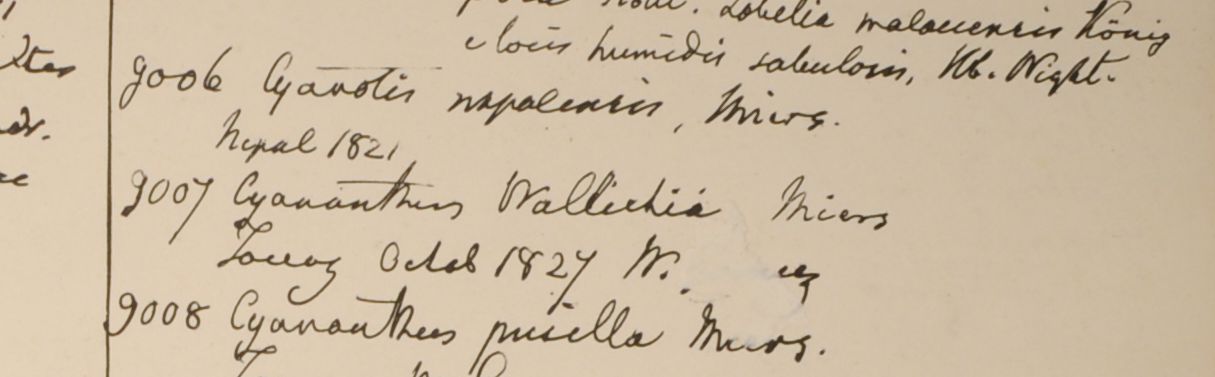 Lobelia malaccensis König
e locis humidis sabulosis, Hb. Wight.
9006 Cyanotis nepalensis, Miers.
Nepal 1821
9007 Cyananthus Wallichia Miers
Tavoy Octob 1827 W.
9008 Cyananthus pusilla Miers.